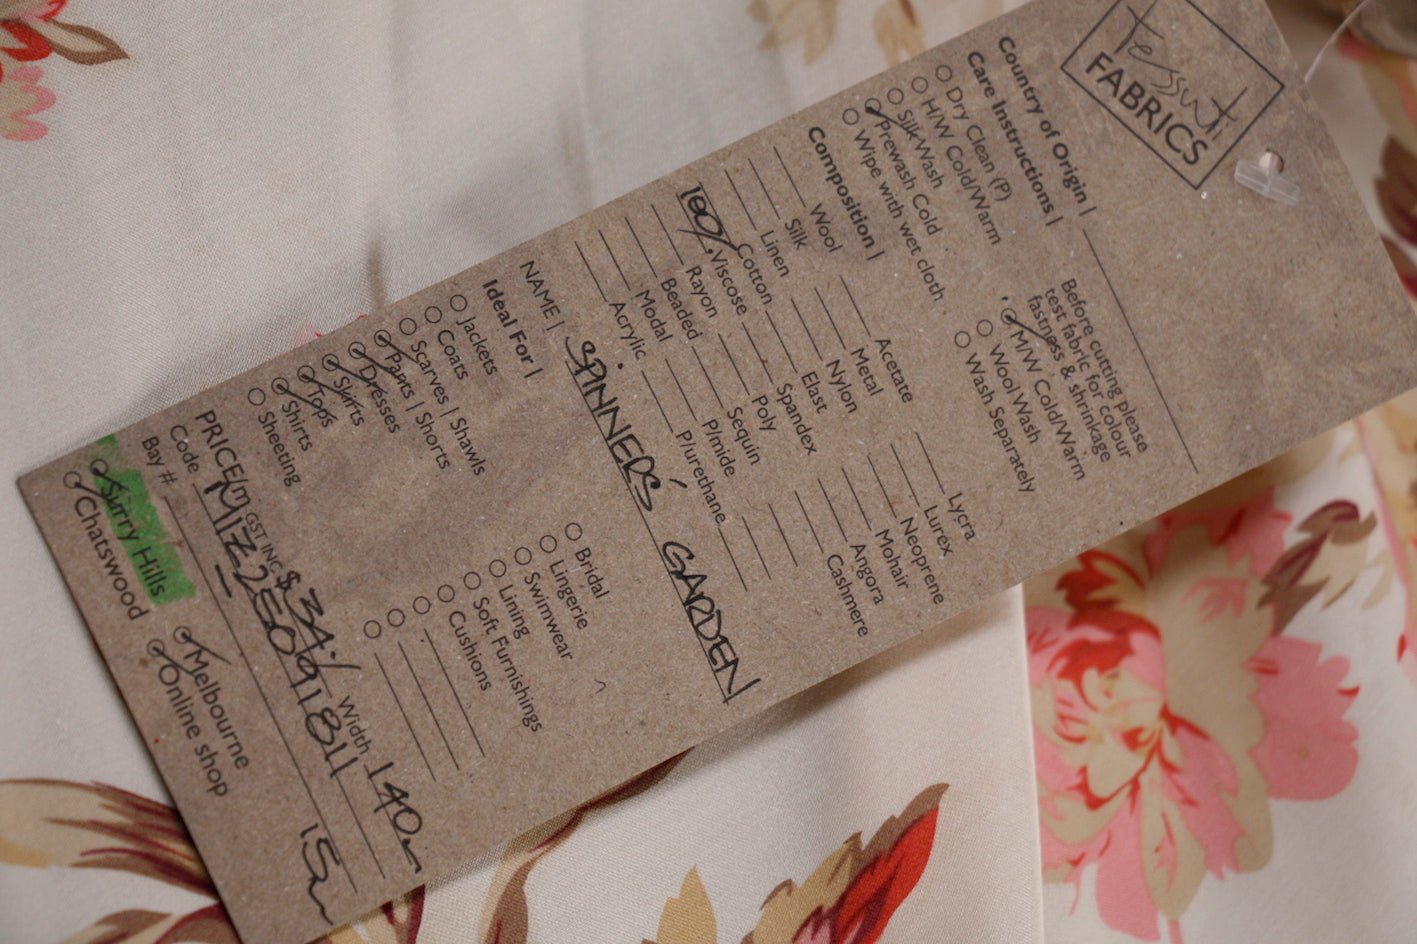 Tessuti
FABRICS
Country of Origin |
Care Instructions |
Dry Clean (P)
H/W Cold/Warm
Silk Wash
Prewash Cold
Wipe with wet cloth
Before cutting please
test fabric for colour
fastness & shrinkage
M/W Cold/Warm
Wool Wash
Wash Separately
Composition |
Wool Acetate Lycra
Silk Metal Lurex
Linen Nylon Neoprene
Cotton Elast Mohair
100% Viscose Spandex Angora
Rayon Poly Cashmere
Beaded Sequin
Modal P/mide
Acrylic P/urethane
NAME | SPINNERS' GARDEN
Ideal For |
Jackets Bridal
Coats Lingerie
Scarves | Shawls Swimwear
Pants | Shorts Lining
Dresses Soft Furnishings
Skirts Cushions
Tops
Shirts
Sheeting
PRICE/m GST INC $34./ Width 140
Code
Bay #
Surry Hills Melbourne
Chatswood Online shop